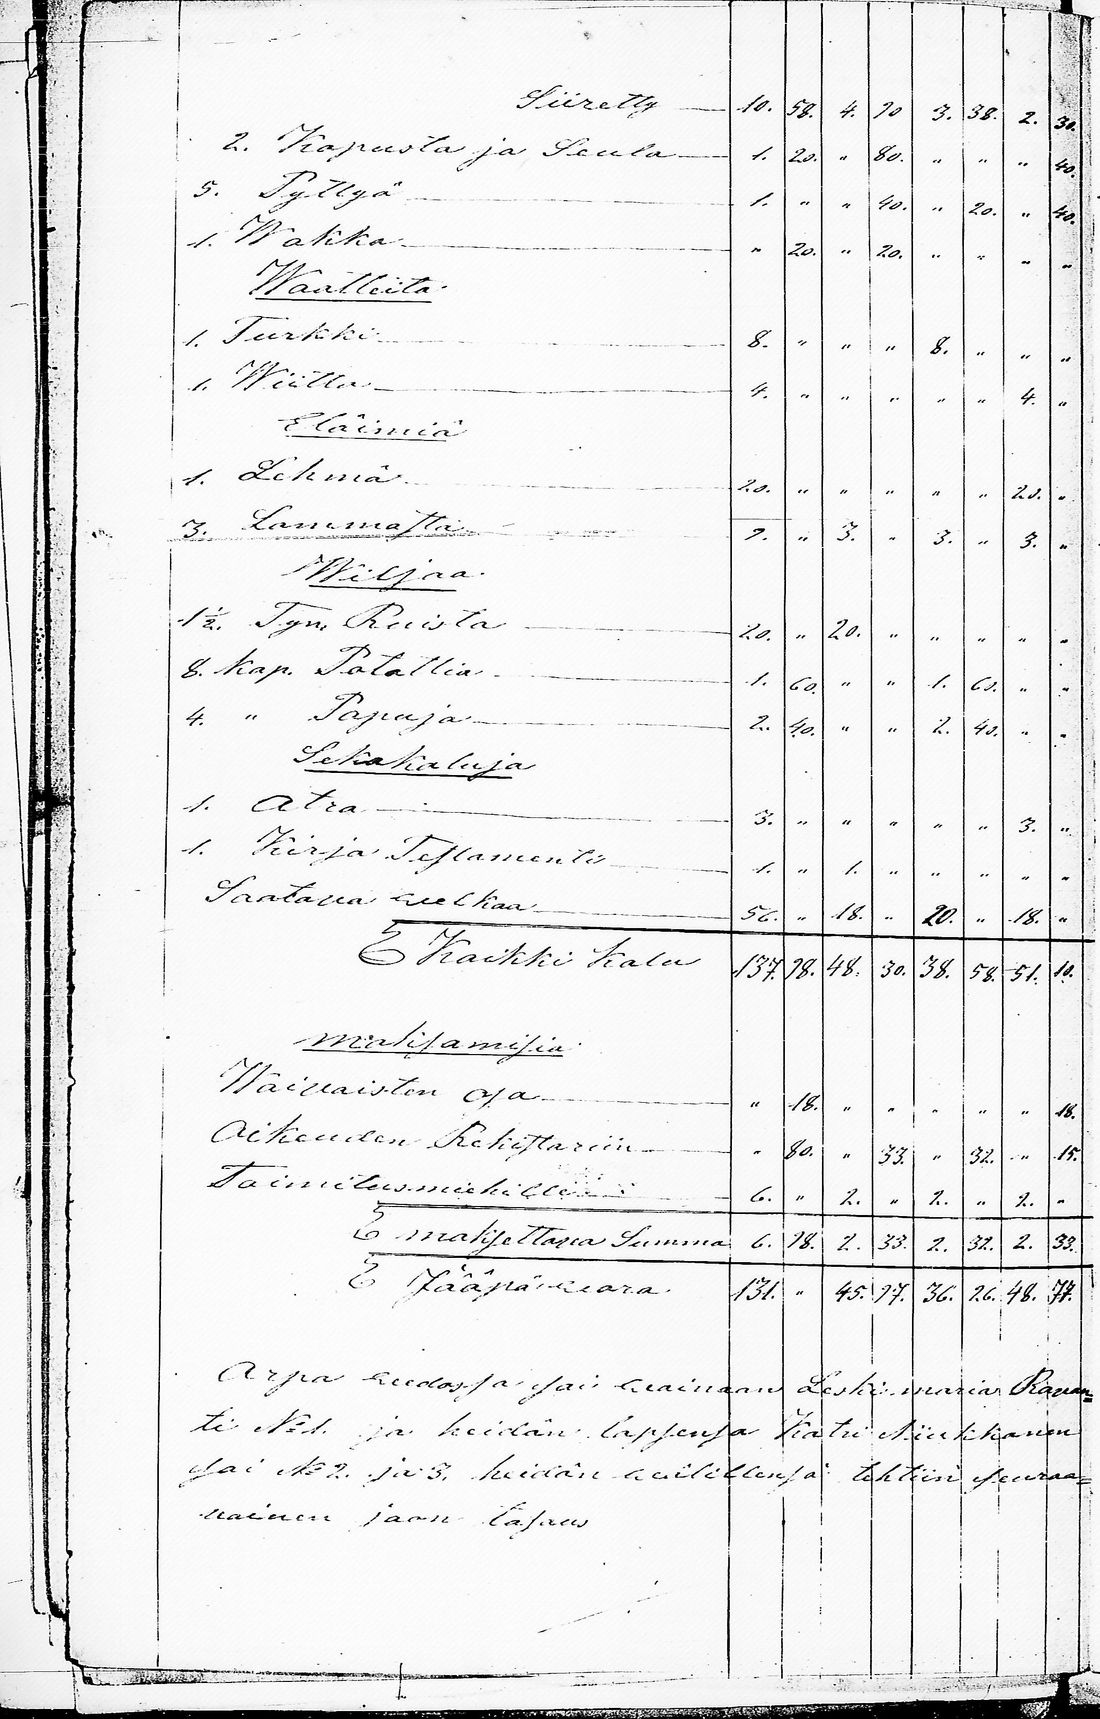 Siiretty 10. 58. 4. 90 3. 38. 2. 30.
2. Kapusta ja Seula 1. 20. " 80. " " " 40.
5. Pyttyä 1. " " 40. " 20. " 40.
1. Wakka " 20. " 20. " " " "
Waatteita
1. Turkki 8. " " " 8. " " "
1. Wiitta 4. " " " " " 4. "
Eläimiä
1. Lehmä 20. " " " " " 20. "
3. Lammasta 9. " 3. " 3. " 3. "
Wiljaa
1½. Tyn. Ruista 20. " 20. " " " " "
8. kap. Potattia 1. 60. " " 1. 60. " "
4. " Papuja 2. 40. " " 2. 40. " "
Sekakaluja
1. Atra 3. " " " " " 3. "
1. Kirja Testamenti 1. " 1. " " " " "
Saatava welkaa 56. " 18. " 20. " 18. "
Kaikki Kalu 137. 98. 48. 30. 38. 58. 51. 10.
Maksamisia
Waivaisten osa " 18. " " " " " 18.
Oikeuden Rekistariin " 80. " 33. " 32. " 15.
Toimitusmiehille 6. " 2. " 2. " 2. "
maksettava Summa 6. 98. 2. 33. 2. 32. 2. 33.
Jääpä wara 131. " 45. 97. 36. 26. 48. 77.
Arpa wedossa sai wainaan Leski Maria Ravan=
ti No 1. ja heidän lapsensa Katri Niukkanen
sai No 2. ja 3. heidän wälillensä tehtiin seuraa=
vainen jaon tasaus